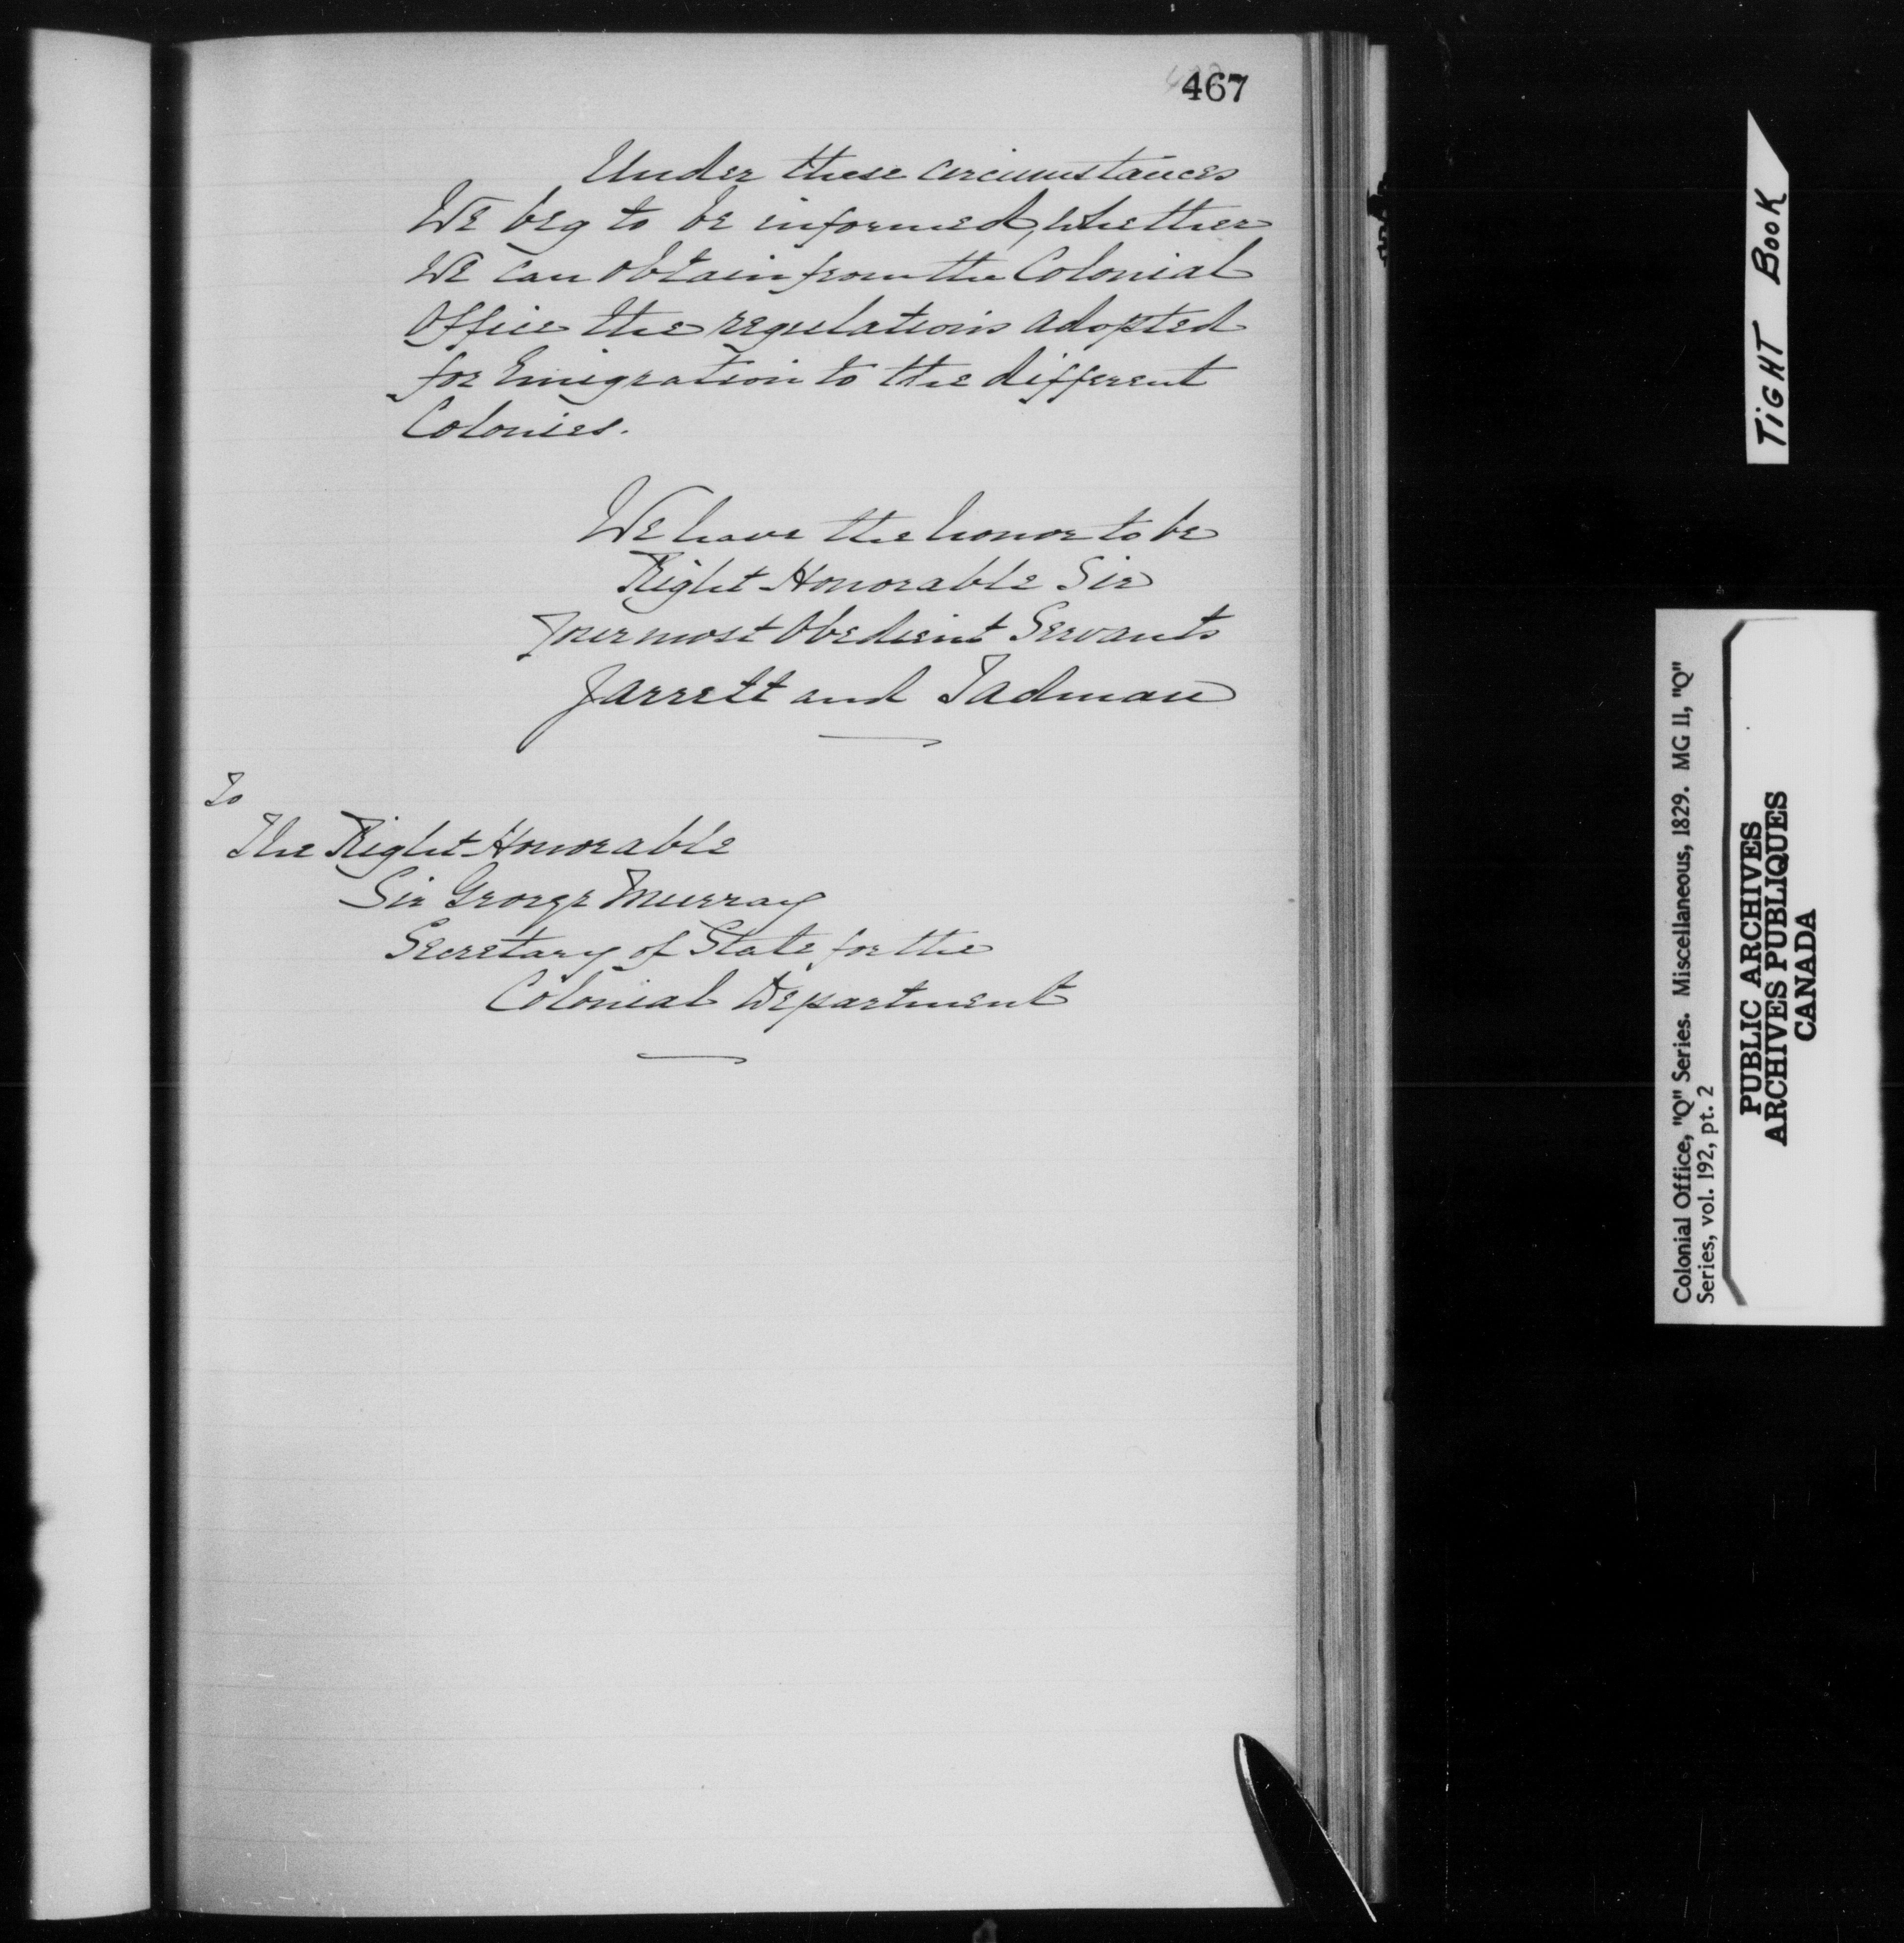 467
Under these circumstances
We beg to be informed, whether
We can obtain from the Colonial
Office the regulations adopted
for Emigration to the different
Colonies.
We have the honor to be
Right Honorable Sir
Your most Obedient Servants
Jarrett and Tadman
To
The Right Honorable
Sir George Murray
Secretary of State for the
Colonial Department
TIGHT BOOK
Colonial Office, "Q" Series. Miscellaneous, 1829. MG 11, "Q"
Series, vol. 192, pt. 2
PUBLIC ARCHIVES
ARCHIVES PUBLIQUES
CANADA